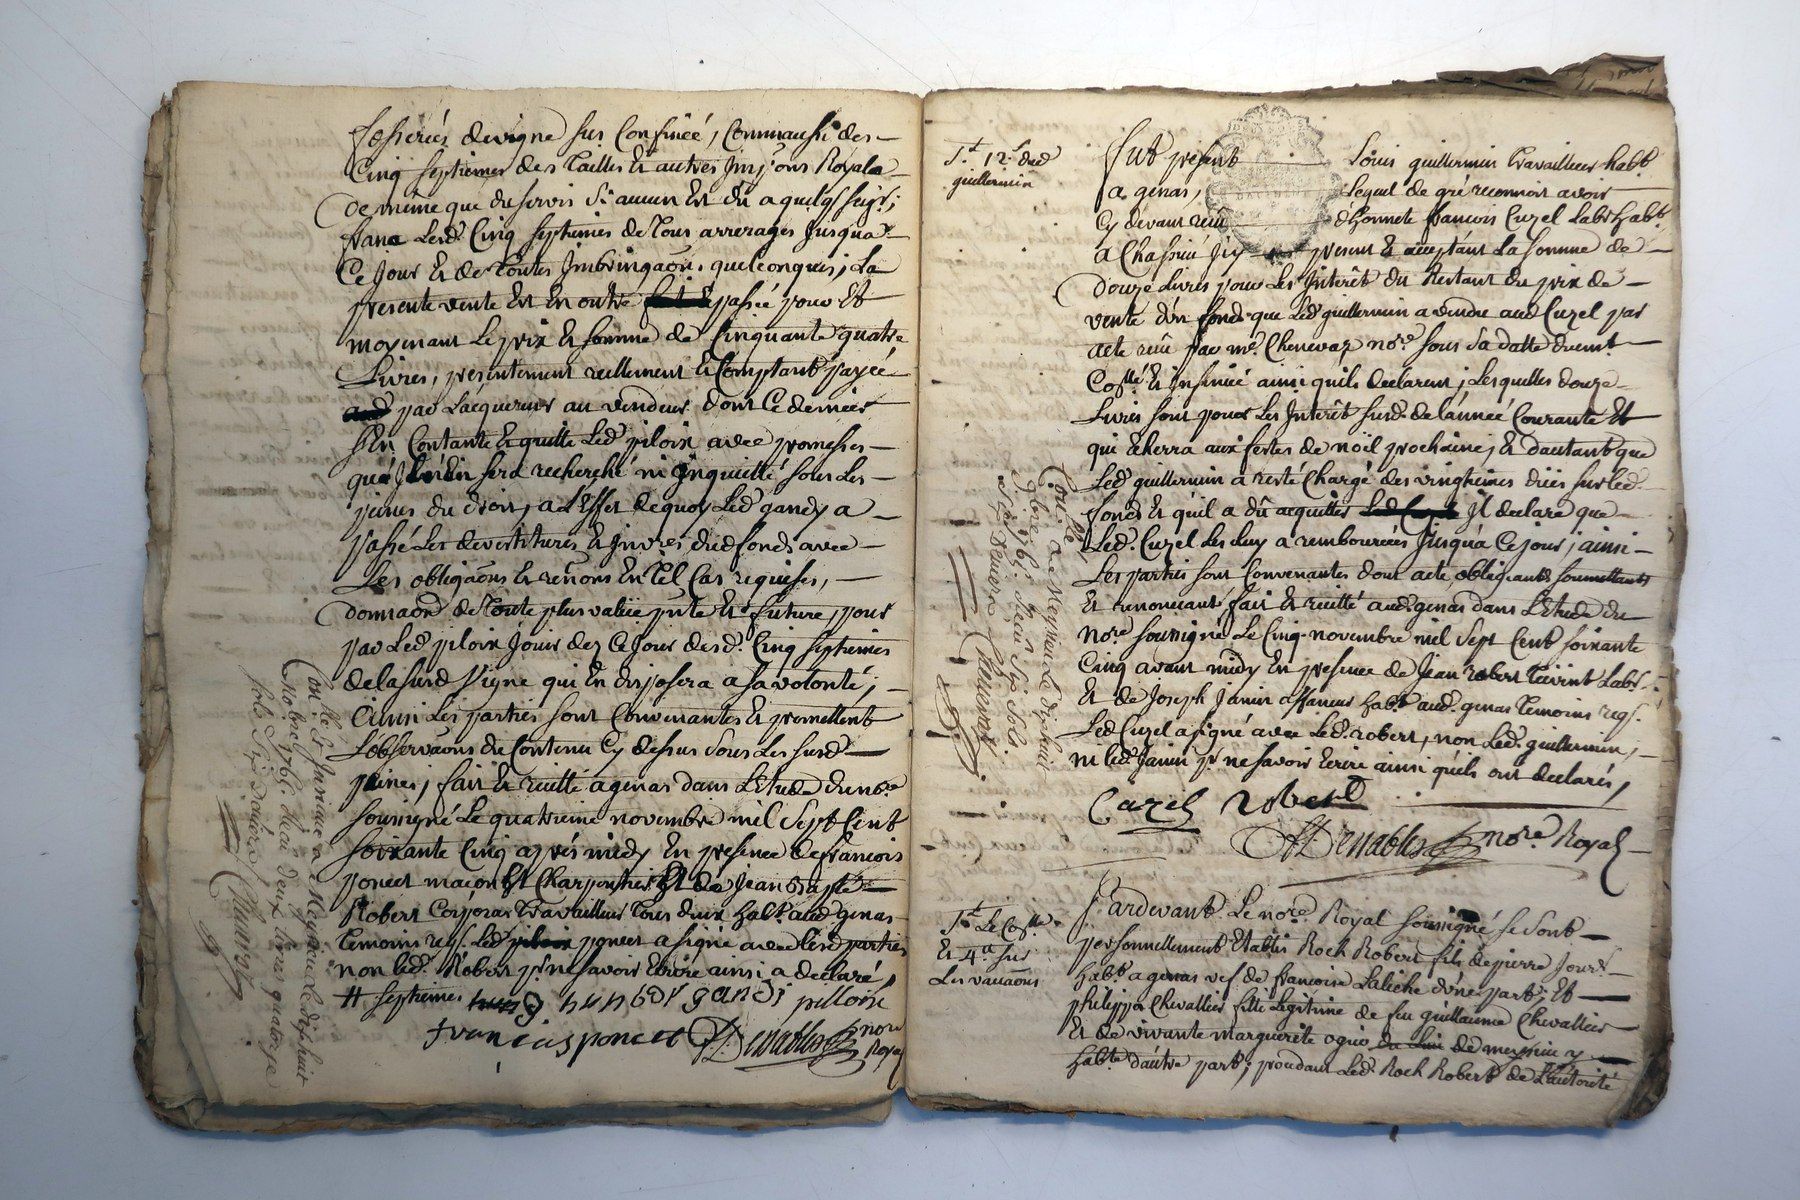 fosserées de vigne sus Confinéé, Comm'aussi des
Cinq septiemes des Tailles Et autres Imp'ons Royales
De même que du servis Si aucun Est Dû a quelqs seigr;
franc Lesd. Cinq septiemes de Tous arrerages Jusqua
Ce Jour Et de Toutes Imbringaõns quelconques; La
presente vente Est En outre passéé pour Et
moyenant Le prix Et somme de Cinquante quatre
Livres, presentement reellement Et Comptant payéé
par Lacquereur au vendeur dont Ce dernier
s'En Contante Et quitte Led. piloix avec promesses
qu'Il n'En sera recherché ni Inquietté sous Les
peines du droit, a L'Effet dequoy Led. gandy a
passé Les devestitures Et Invres dud fonds avec
Les obligaõns Et renõns En Tel Cas requises,
donnaõn de Toute plus valüe pnte Et future, pour
par Led. piloix Jouir dez Ce Jour desd. Cinq septiemes
de la susd Vigne qui En disposera a sa volonté;
Ainsi Les parties sont Convenantes Et promettent
L'observaõns du Contenu Cy dessus sous Les susd.
peines; fait Et recitté a genas dans L'Etude du nre
soussigné Le quatrieme novembre mil Sept Cent
soixante Cinq aprés midy En presence de francois
poncet maçon Et Charpentier Et de Jean Bapte
Robert Corporat Travailleur Tous deux habt. aud genas
Temoins reqs. Led. poncet a signé avec Lesd parties
non led. Robert pr ne savoir Ecrire ainsi a declaré,
# septiemes hunbér gandi pilloise
francois poncet Derrables nore
Royal
Con.lle Et Insinué a Meyzieu Le dixhuit
Nobre 1765 Recu deux Livres quatorze
sols Six deniers
St. 12s. dud
guillermin
fut present Louis guillermin Travailleur habt.
a genas, Lequel de gré reconnoit avoir
Cy devant recu d'honnete francois Cuzel Labr habt.
a Chassieu Jcy present Et acceptant La somme de
Douze Livres pour Les Interêt du Restant du prix de
vente d'un fonds que Led. guillermin a vendu aud Cuzel par
acte recu par me. Chenevaz nore. sous sa datte duemt.
Collé. Et insinüé ainsi qu'ils declarent; Lesquelles douze
Livres sont pour Les Interêt susd. de l'année Courante Et
qui Echerra aux festes de noël prochaine; Et d'autant que
Led. guillermin a resté Chargé des vingtiemes düs sur led.
fonds Et qu'il a dû acquitter Il declare que
Led. Cuzel Les Luy a rembourcées Jusqu'a Ce Jour; ainsi
Les parties sont Convenantes dont acte obligeants soumettants
Et renonceant; fait Et recitté aud. genas dans L'Etude du
nore soussigné Le Cinq novembre mil Sept Cent soixante
Cinq avant midy En presence de Jean Robert Labr.
Et de Joseph Janin affaneur habt. aud. genas Temoins reqs.
Led Cuzel a signé avec Led. robert, non Led. guillermin,
ni led. Janin pr. ne savoir Ecrire ainsi qu'ils ont declarés,
Cuzel robert
Derrables nore. Royal
a Meyzieu Le dixhuit
9bre 1765. Recu Six Sols
Six Deniers
Par devant Le nore. Royal soussigné se sont
personnellement Etablis Roch Robert fils de pierre Jourr.
habt a genas vef. de francoise Labiche d'une part; Et
philippa Chevallier fille Legitime de feu guillaume Chevallier
Et de vivante marguerite ogier de meyzieu y
habte. d'autre part; procedant Led. Roch Robert de L'autorité